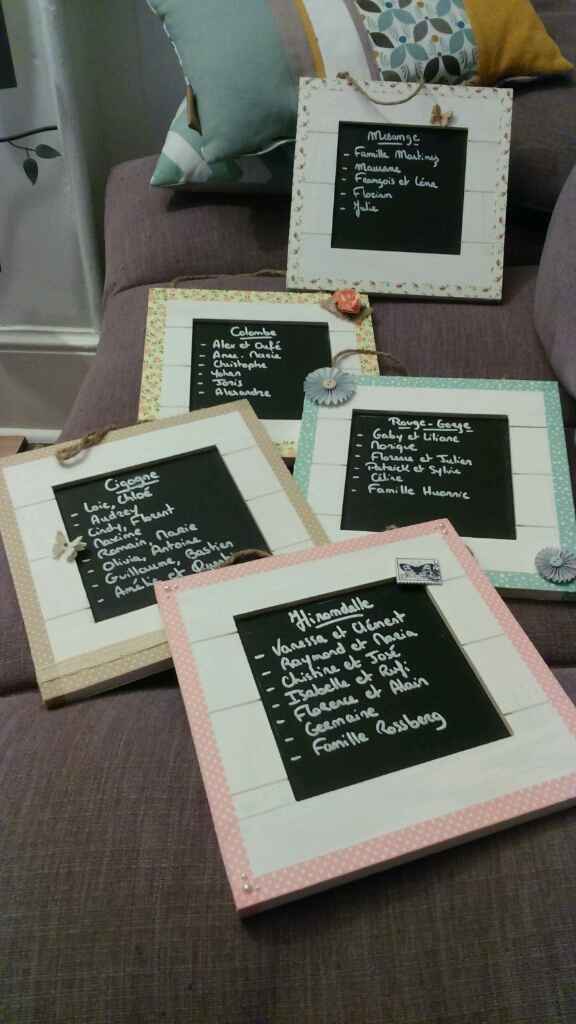 Mesange
- Famille Martinez
- Maurane
- François et Léna
- Florian
- Julie
Colombe
- Alex et Oufé
- Anne-Marie
- Christophe
- Yohan
- Joris
- Alexandre
Rouge-Gorge
- Gaby et Liliane
- Monique
- Florence et Julien
- Patrick et Sylvie
- Céline
- Famille Huonnic
Cigogne
- Loïc, Chloé
- Audrey
- Cindy, Florent
- Maxime
- Romain, Marie
- Olivia, Antoine
- Guillaume, Bastien
- Amélie et
Hirondelle
- Vanessa et Clément
- Raymond et Maria
- Christine et José
- Isabelle et Rufi
- Florence et Alain
- Germaine
- Famille Rossberg